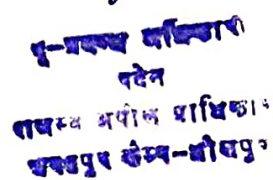 भू-प्रबन्ध अधिकारी
पदेन
राजस्व अपील प्राधिका
कैम्प-जोधपुर